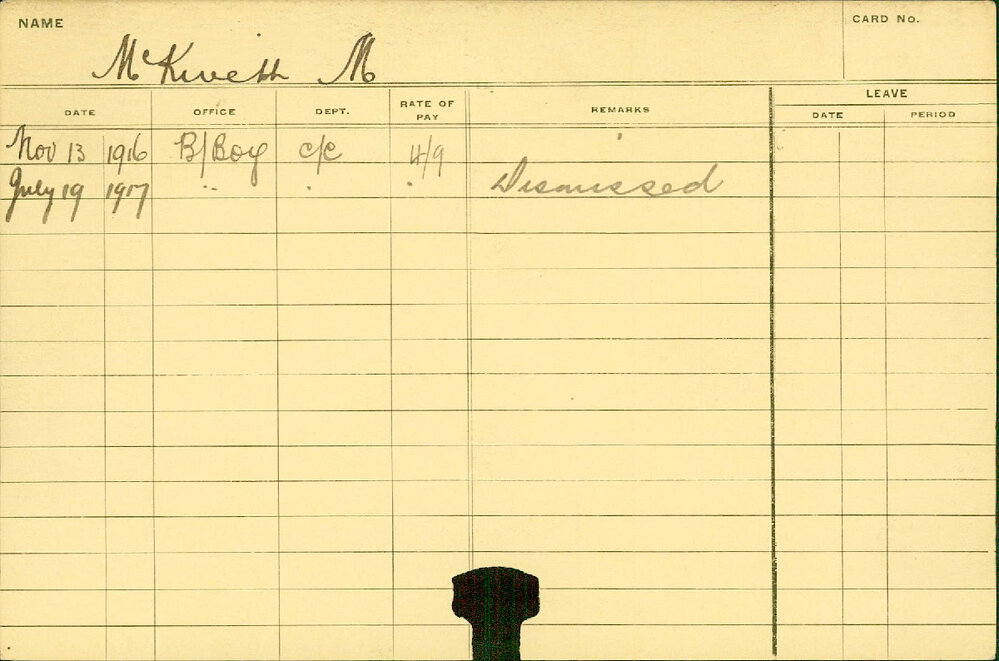 NAME
CARD No.
McKiveth M
DATE OFFICE DEPT. RATE OF PAY REMARKS LEAVE
DATE PERIOD
Nov 13 1916 B/Boy c/c 4/9
July 19 1917 " " " Dismissed